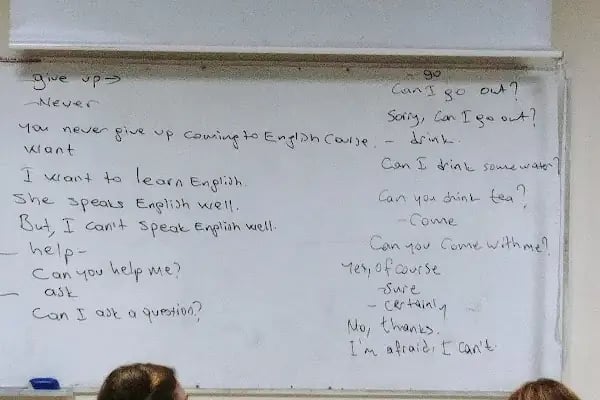 give up →
- Never
You never give up coming to English Course.
Want
I want to learn English.
She speaks English well.
But, I can't speak English well.
- help -
Can you help me?
- ask
Can I ask a question?
- go
Can I go out?
Sorry, Can I go out?
- drink.
Can I drink some water?
Can you drink tea?
- Come
Can you Come with me?
Yes, of course
- sure
- certainly
No, thanks.
I'm afraid, I can't.